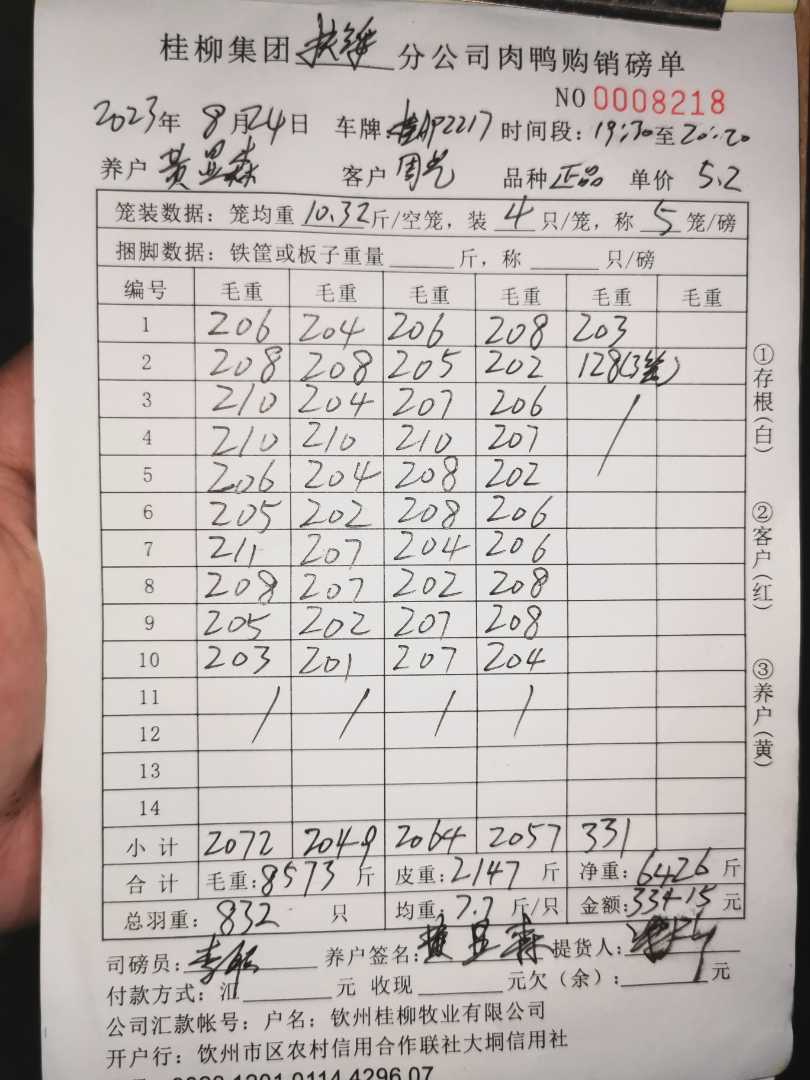 桂柳集团扶绥分公司肉鸭购销磅单
NO 0008218
2023年8月24日 车牌:桂AP2217 时间段:19:30至20:20
养户黄显森 客户 品种正品 单价 5.2
笼装数据：笼均重10.32斤/空笼，装4只/笼，称5笼/磅
捆脚数据：铁筐或板子重量____斤，称____只/磅
编号 毛重 毛重 毛重 毛重 毛重 毛重
1 206 204 206 208 203
2 208 208 205 202 128(3笼)
3 210 204 207 206 /
4 210 210 210 207
5 206 204 208 202
6 205 202 208 206
7 211 207 204 206
8 208 207 202 208
9 205 202 207 208
10 203 201 207 204
11 / / / /
12
13
14
小计 2072 2049 2064 2057 331
合计 毛重:8573斤 皮重:2147斤 净重:6426斤
总羽重：832只 均重:7.7斤/只 金额:33415元
司磅员: 养户签名:黄显森 提货人:
付款方式：汇____元 收现____元欠（余）:____元
公司汇款帐号：户名：钦州桂柳牧业有限公司
开户行：钦州市区农村信用合作联社大垌信用社
①存根(白)
②客户(红)
③养户(黄)